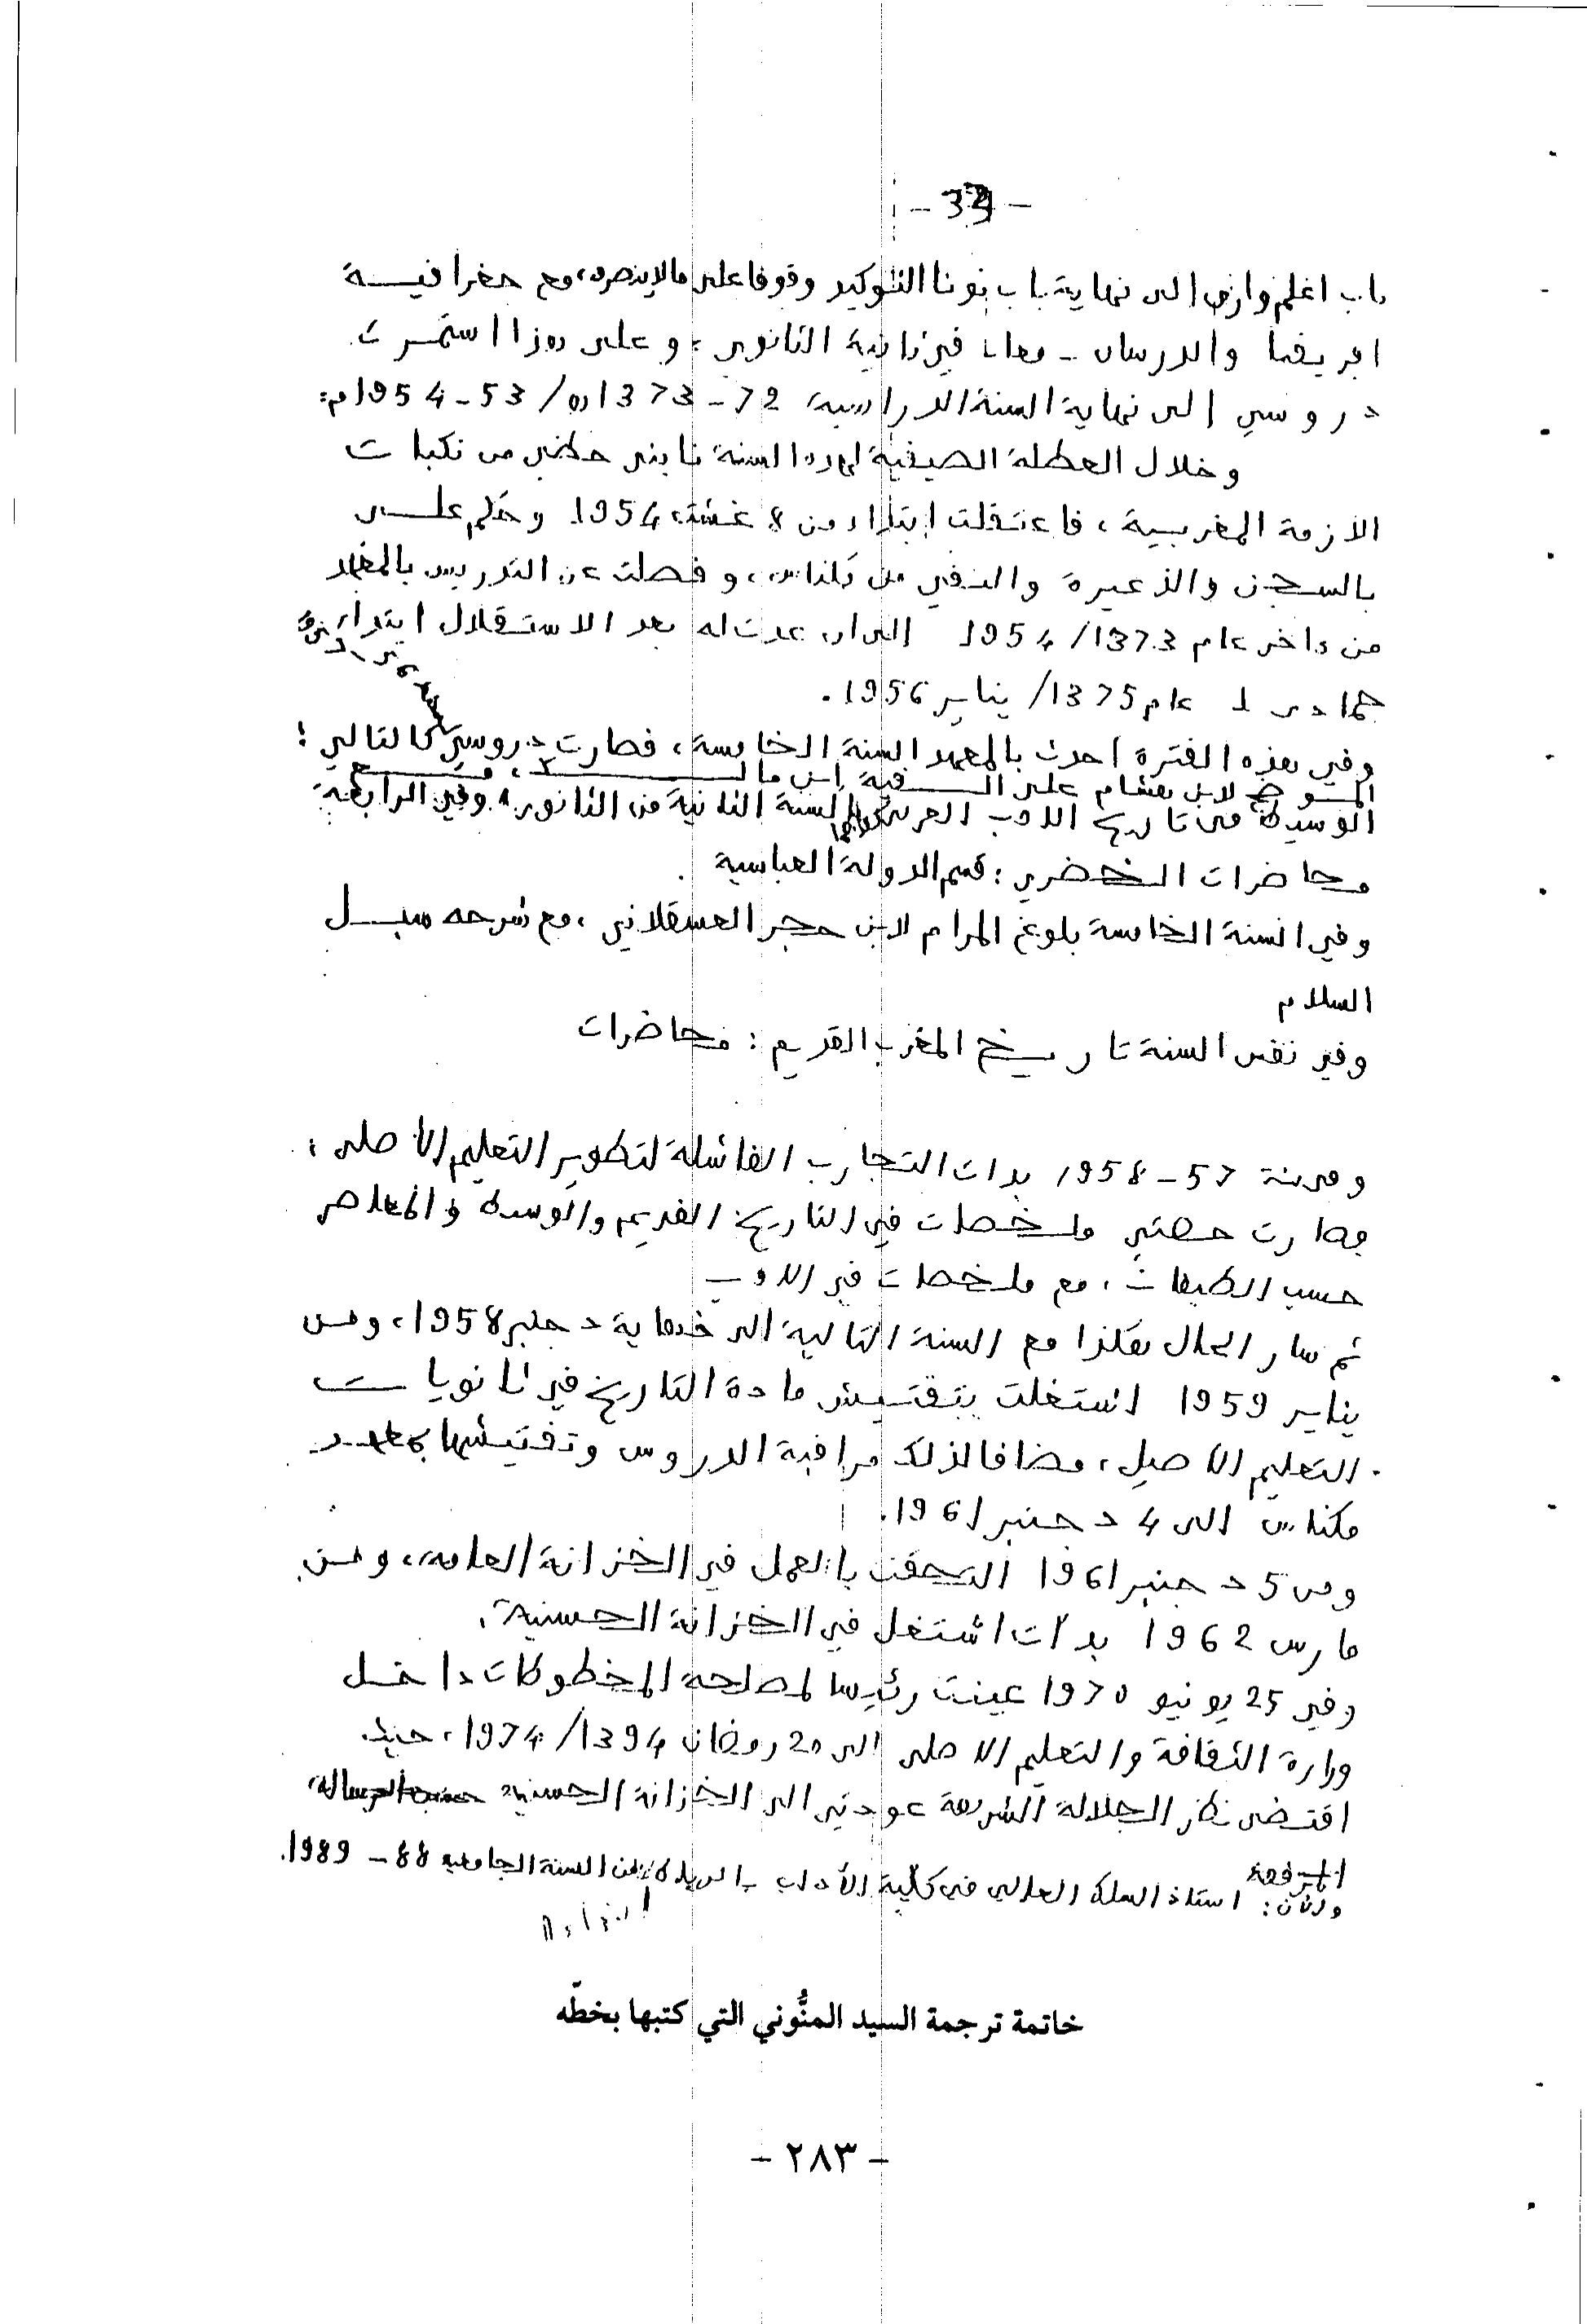 - 33 -
باب اعلم وارى الى نهاية باب نونا التوكيد وقوفا على مالا ينصرف، مع جغرافيــة
افريقيا والدرسان - معا - في ثانية الثانوي، وعلى هذا استمــرت
دروسي الى نهاية السنة الدراسية 72-1373هـ/ 53-1954م:
وخلال العطلة الصيفية لهذه السنة نابني حظي من نكبات
الازمة المغربية، فاعتقلت ابتداء من 8 غشت 1954 وحكم علــى
بالسجن والذعيرة والنفي من مكناس، وفصلت عن التدريس بالمعهد
من داخر عام 1373/ 1954 الى ان عدت له بعد الاستقلال ابتداء من
جمادى 1 عام 1375/ يناير 1956.
وفي هذه الفترة احدث بالمعهد السنة الخامسة، فصارت دروسي كالتالي:
الموضح لابن هشام على الفية ابن مالــك، مــع
الوسيط في تاريخ الادب العربي السنة الثانية من الثانوي. وفي الرابعة
محاضرات الخضري: قسم الدولة العباسية
وفي السنة الخامسة بلوغ المرام لابن حجر العسقلاني، مع شرحه سبــل
السلام
وفي نفس السنة تاريــخ المغرب القديم: محاضرات
ومن سنة 57-1958 بدات التجارب الفاشلة لتطوير التعليم الأصلي،
وصارت حصتي ملخصات في التاريخ القديم والوسيط والمعاصر
حسب الطبقات، مع ملخصات في الادب
ثم سار الحال هكذا مع السنة التالية الى نهاية دجنبر 1958، ومــن
يناير 1959 اشتغلت بتفتيش مادة التاريخ في ثانويات
التعليم الاصيل، مضافا لذلك مراقبة الدروس وتفتيشها بمعهد
مكناس الى 4 دجنبر 1961.
ومن 5 دجنبر 1961 التحقت بالعمل في الخزانة العامة، ومــن
مارس 1962 بدات اشتغل في الخزانة الحسنية،
وفي 25 يونيو 1970 عينت رئيسا لمصلحة المخطوطات داخــل
وزارة الثقافة والتعليم الاصلي الى 20 رمضان 1394/ 1974، حيث
اقتضى نظر الجلالة الشريفة عودتي الى الخزانة الحسنية حسب الرسالة
المرفقة
والآن: استاذ السلك العالي في كلية الآداب بالرباط من السنة الجامعية 88-1989.
خاتمة ترجمة السيد المنُّوني التي كتبها بخطّه
- ٢٨٣ -